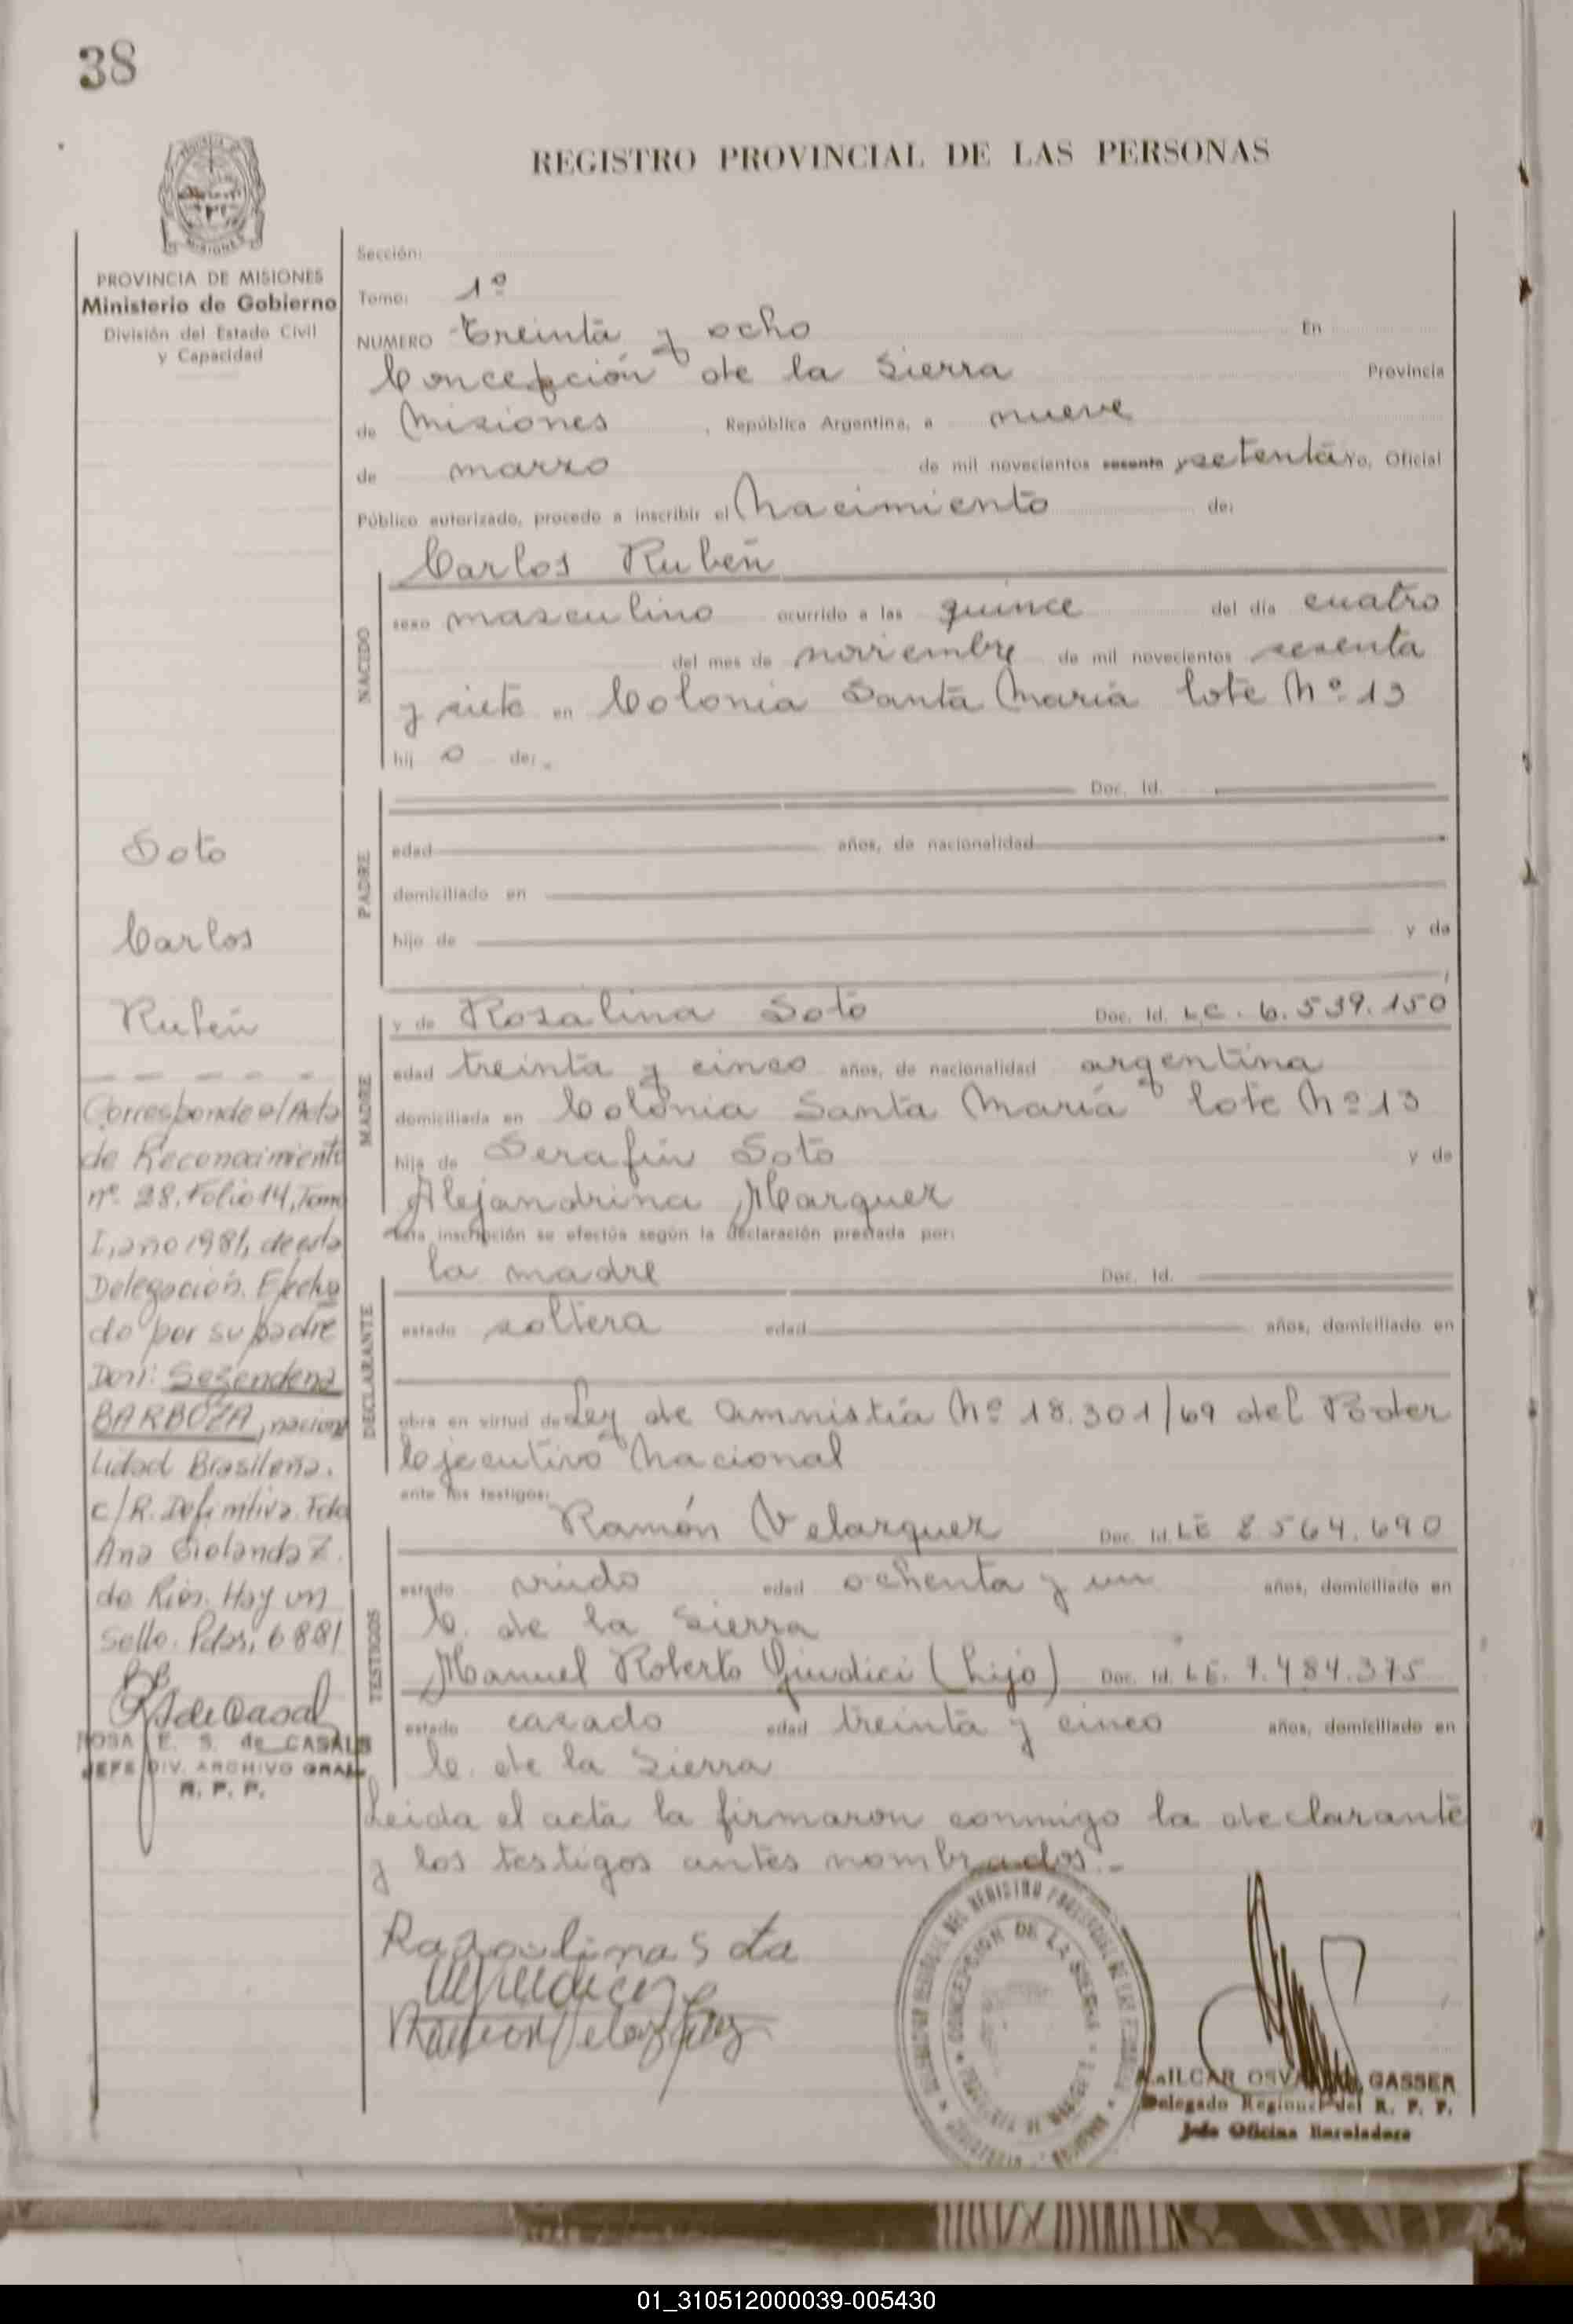 38
REGISTRO PROVINCIAL DE LAS PERSONAS
MISIONES
PROVINCIA DE MISIONES
Ministerio de Gobierno
División del Estado Civil
y Capacidad
Sección:
Tomo: 1º
NUMERO Treinta y ocho En
Concepción de la Sierra Provincia
de Misiones, República Argentina, a nueve
de marzo de mil novecientos sesenta y setenta Yo, Oficial
Público autorizado, procedo a inscribir el Nacimiento de:
NACIDO
Carlos Rubén
sexo masculino ocurrido a las quince del día cuatro
del mes de noviembre de mil novecientos sesenta
y siete en Colonia Santa María lote Nº 13
hij o de:
PADRE
Doc. Id.
edad años, de nacionalidad
domiciliado en
hijo de y de
MADRE
y de Rosalina Soto Doc. Id. L.C. 6.539.150
edad treinta y cinco años, de nacionalidad argentina
domiciliada en Colonia Santa María lote Nº 13
hija de Serafín Soto y de
Alejandrina Marquez
Esta inscripción se efectúa según la declaración prestada por:
DECLARANTE
la madre Doc. Id.
estado soltera edad años, domiciliado en
obra en virtud de Ley de Amnistía Nº 18.301/69 del Poder
Ejecutivo Nacional
ante los testigos:
TESTIGOS
Ramón Velazquez Doc. Id. LE 2564.690
estado viudo edad ochenta y un años, domiciliado en
C. de la Sierra
Manuel Roberto Giudici (hijo) Doc. Id. LE. 7.484.375
estado casado edad treinta y cinco años, domiciliado en
C. de la Sierra
Leida el acta la firmaron conmigo la declarante
y los testigos antes nombrados.-
Soto
Carlos
Rubén
Corresponde al Acta
de Reconocimiento
nº 28, Folio 14, Tomo
I, año 1981, de esta
Delegación. Efectua
do por su padre
Don: Sezendena
BARBOZA, naciona
lidad Brasileña.
c/R. Definitiva. Fdo
Ana Z.
de Rios. Hay un
Sello. Pdas, 6 8 81
ROSA E. S. de CASALS
JEFE DIV. ARCHIVO GRAL.
R. P. P.
CONCEPCION DE LA SIERRA
GASSER
Delegado Regional del R. P. P.
Jefe Oficina Enroladora
01_310512000039-005430